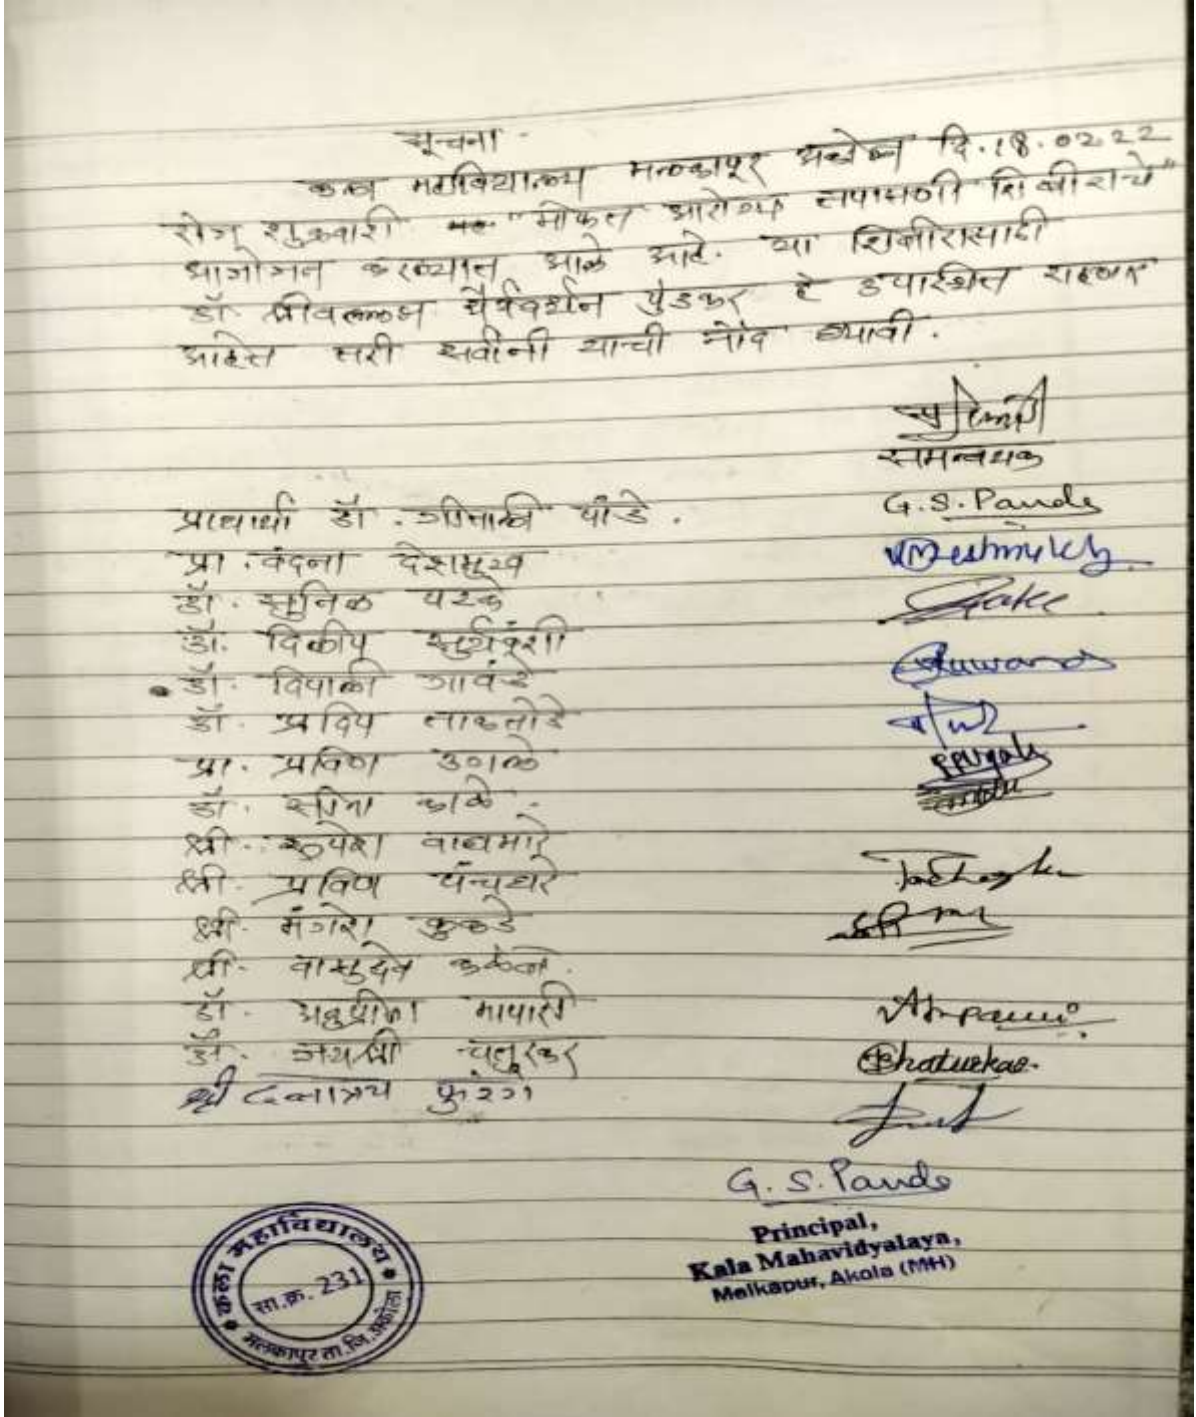 सूचना -
कला महाविद्यालय मलकापूर अकोला दि. 18.02.22
रोज शुक्रवारी "मोफत आरोग्य तपासणी शिबीराचे"
आयोजन करण्यात आले आहे. या शिबीरासाठी
डॉ. श्रीवल्लभ धैर्यवर्धन पुंडकर हे उपास्थित राहणार
आहेत तरी सर्वांनी याची नोंद घ्यावी.
समन्वयक
प्राचार्या डॉ. गीताली पांडे. G.S.Pande
प्रा. वंदना देशमुख VMDeshmukh
डॉ. सुनिल
डॉ. दिलीप सुर्यवंशी
डॉ. दिपाली गावंडे
डॉ. प्रदिप ताकतोडे
प्रा. प्रविण उगले
डॉ. काळे.
श्री. रूपेश वाघमारे
श्री. प्रविण पंचधरे
श्री. मंगेश कुकडे
श्री. वासुदेव
डॉ. अनुप्रीता मापारी
डॉ. जयश्री चतुरकर Chaturkar
श्री दत्तात्रय
G. S. Pande
Principal,
Kala Mahavidyalaya,
Malkapur, Akola (MH)
कला महाविद्यालय
सा.क्र. 231
मलकापूर ता.जि.अकोला